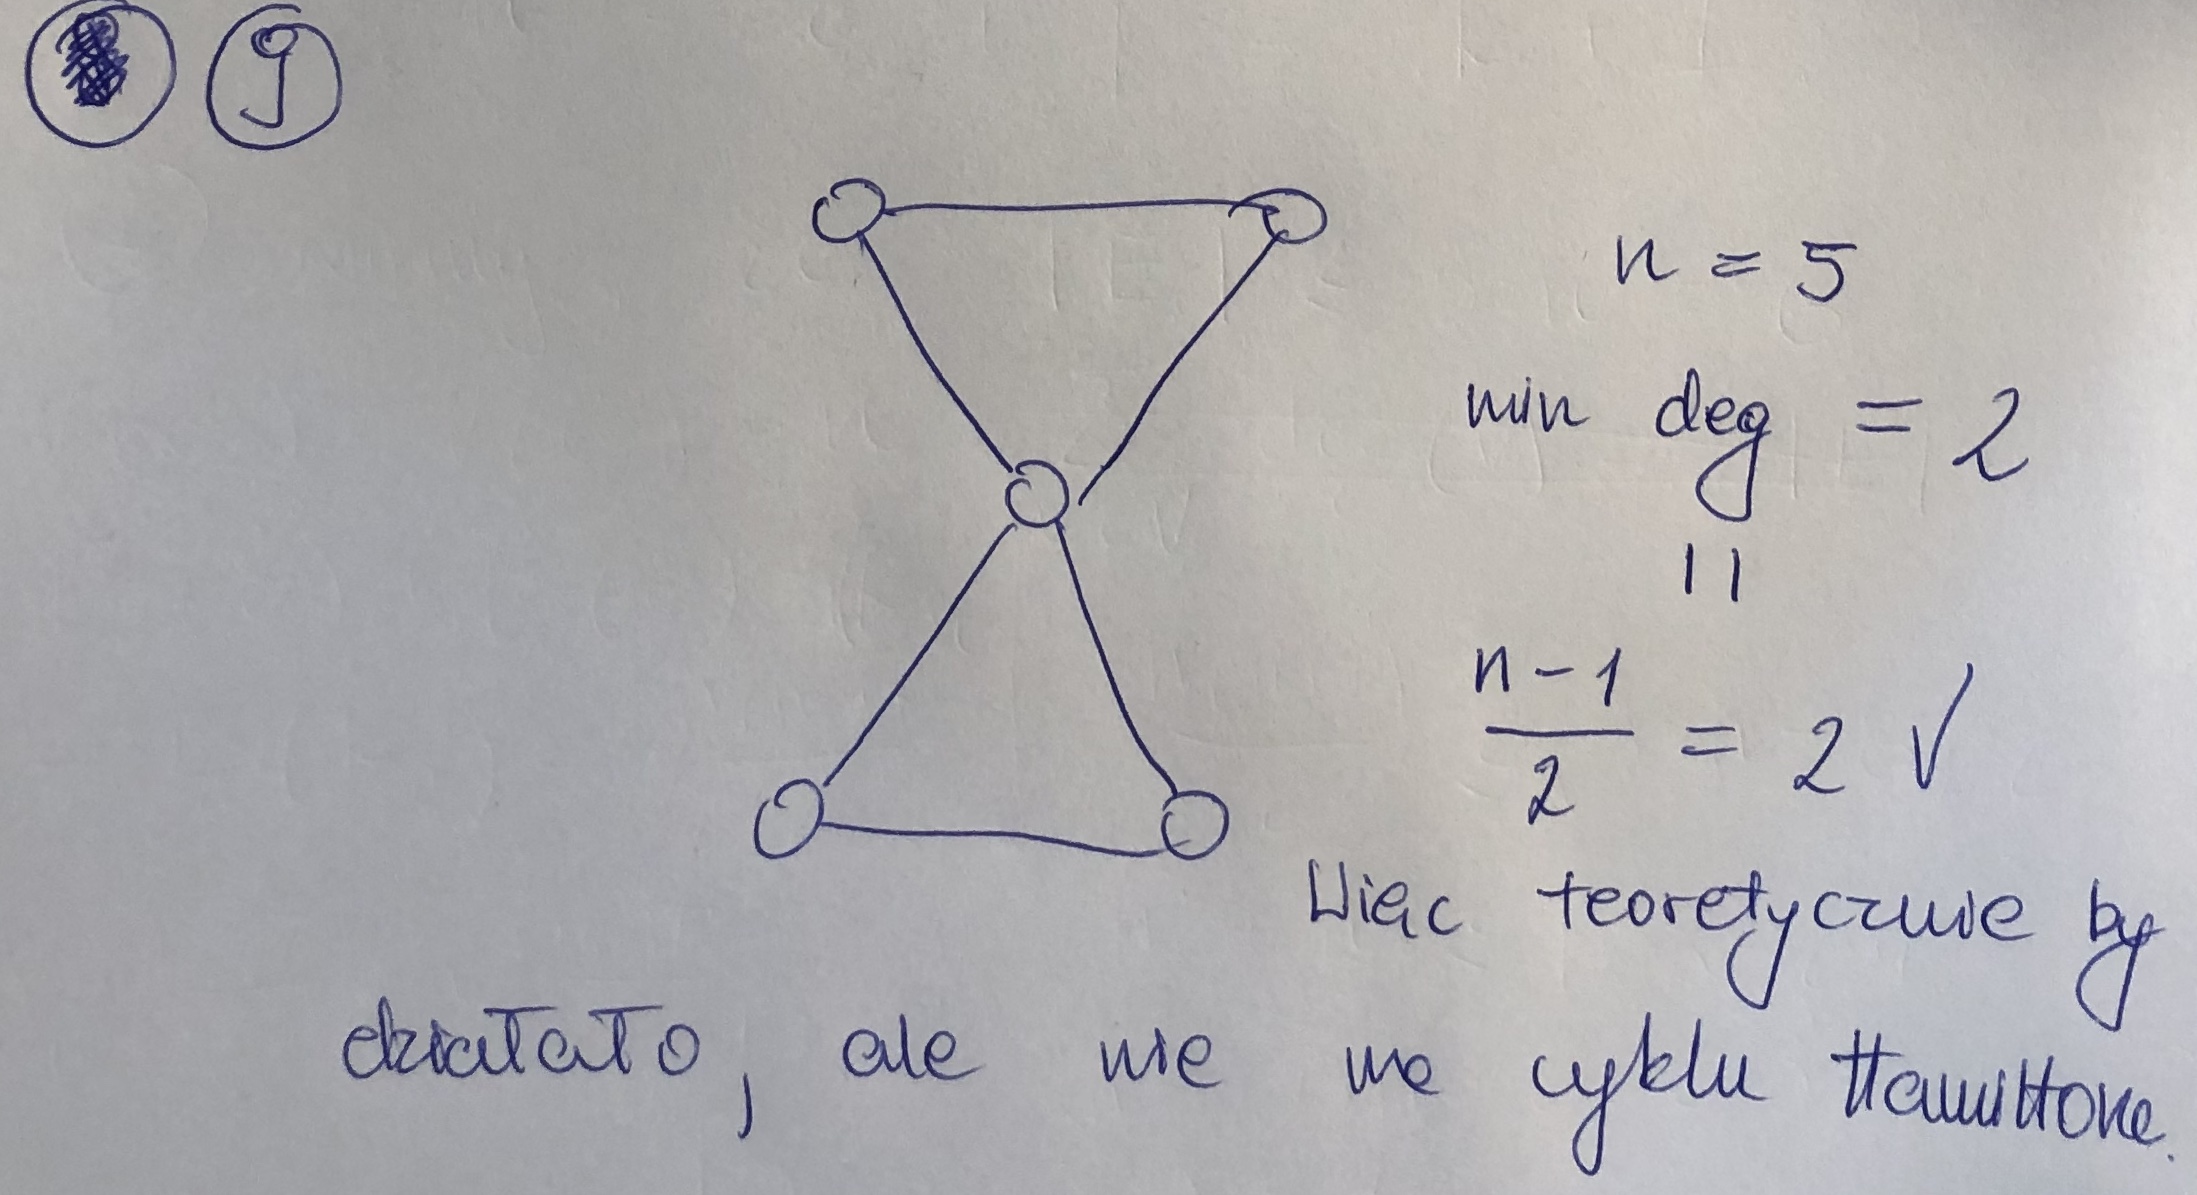 9
n = 5
min deg = 2
||
n-1
2
= 2 ✓
Więc teoretycznie by
działało, ale nie ma cyklu Hamiltona.